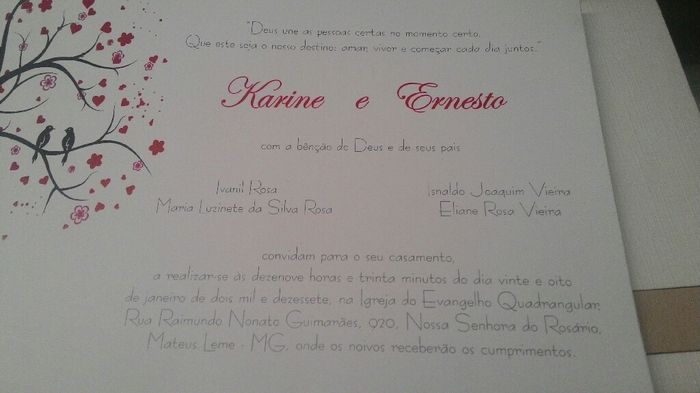 "Deus une as pessoas certas no momento certo.
Que este seja o nosso destino: amar, viver e começar cada dia juntos."
Karine e Ernesto
com a bênção de Deus e de seus pais
Ivanil Rosa
Maria Luzinete da Silva Rosa
Isnaldo Joaquim Vieira
Eliane Rosa Vieira
convidam para o seu casamento,
a realizar-se às dezenove horas e trinta minutos do dia vinte e oito
de janeiro de dois mil e dezessete, na Igreja do Evangelho Quadrangular,
Rua Raimundo Nonato Guimarães, 920, Nossa Senhora do Rosário,
Mateus Leme - MG, onde os noivos receberão os cumprimentos.